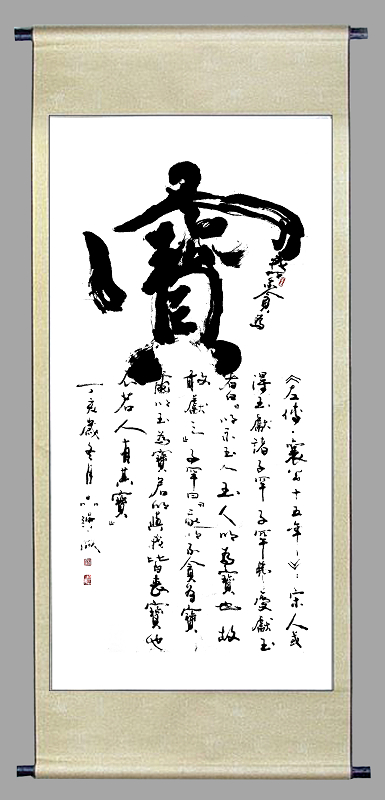 寶
我以不貪為
《左傳·襄公十五年》：宋人或
得玉獻諸子罕子罕弗受獻玉
者曰以示玉人玉人以為寶也故
敢獻之子罕曰我以不貪為寶
爾以玉為寶若以與我皆喪寶也
不若人有其寶」
丁亥歲冬月